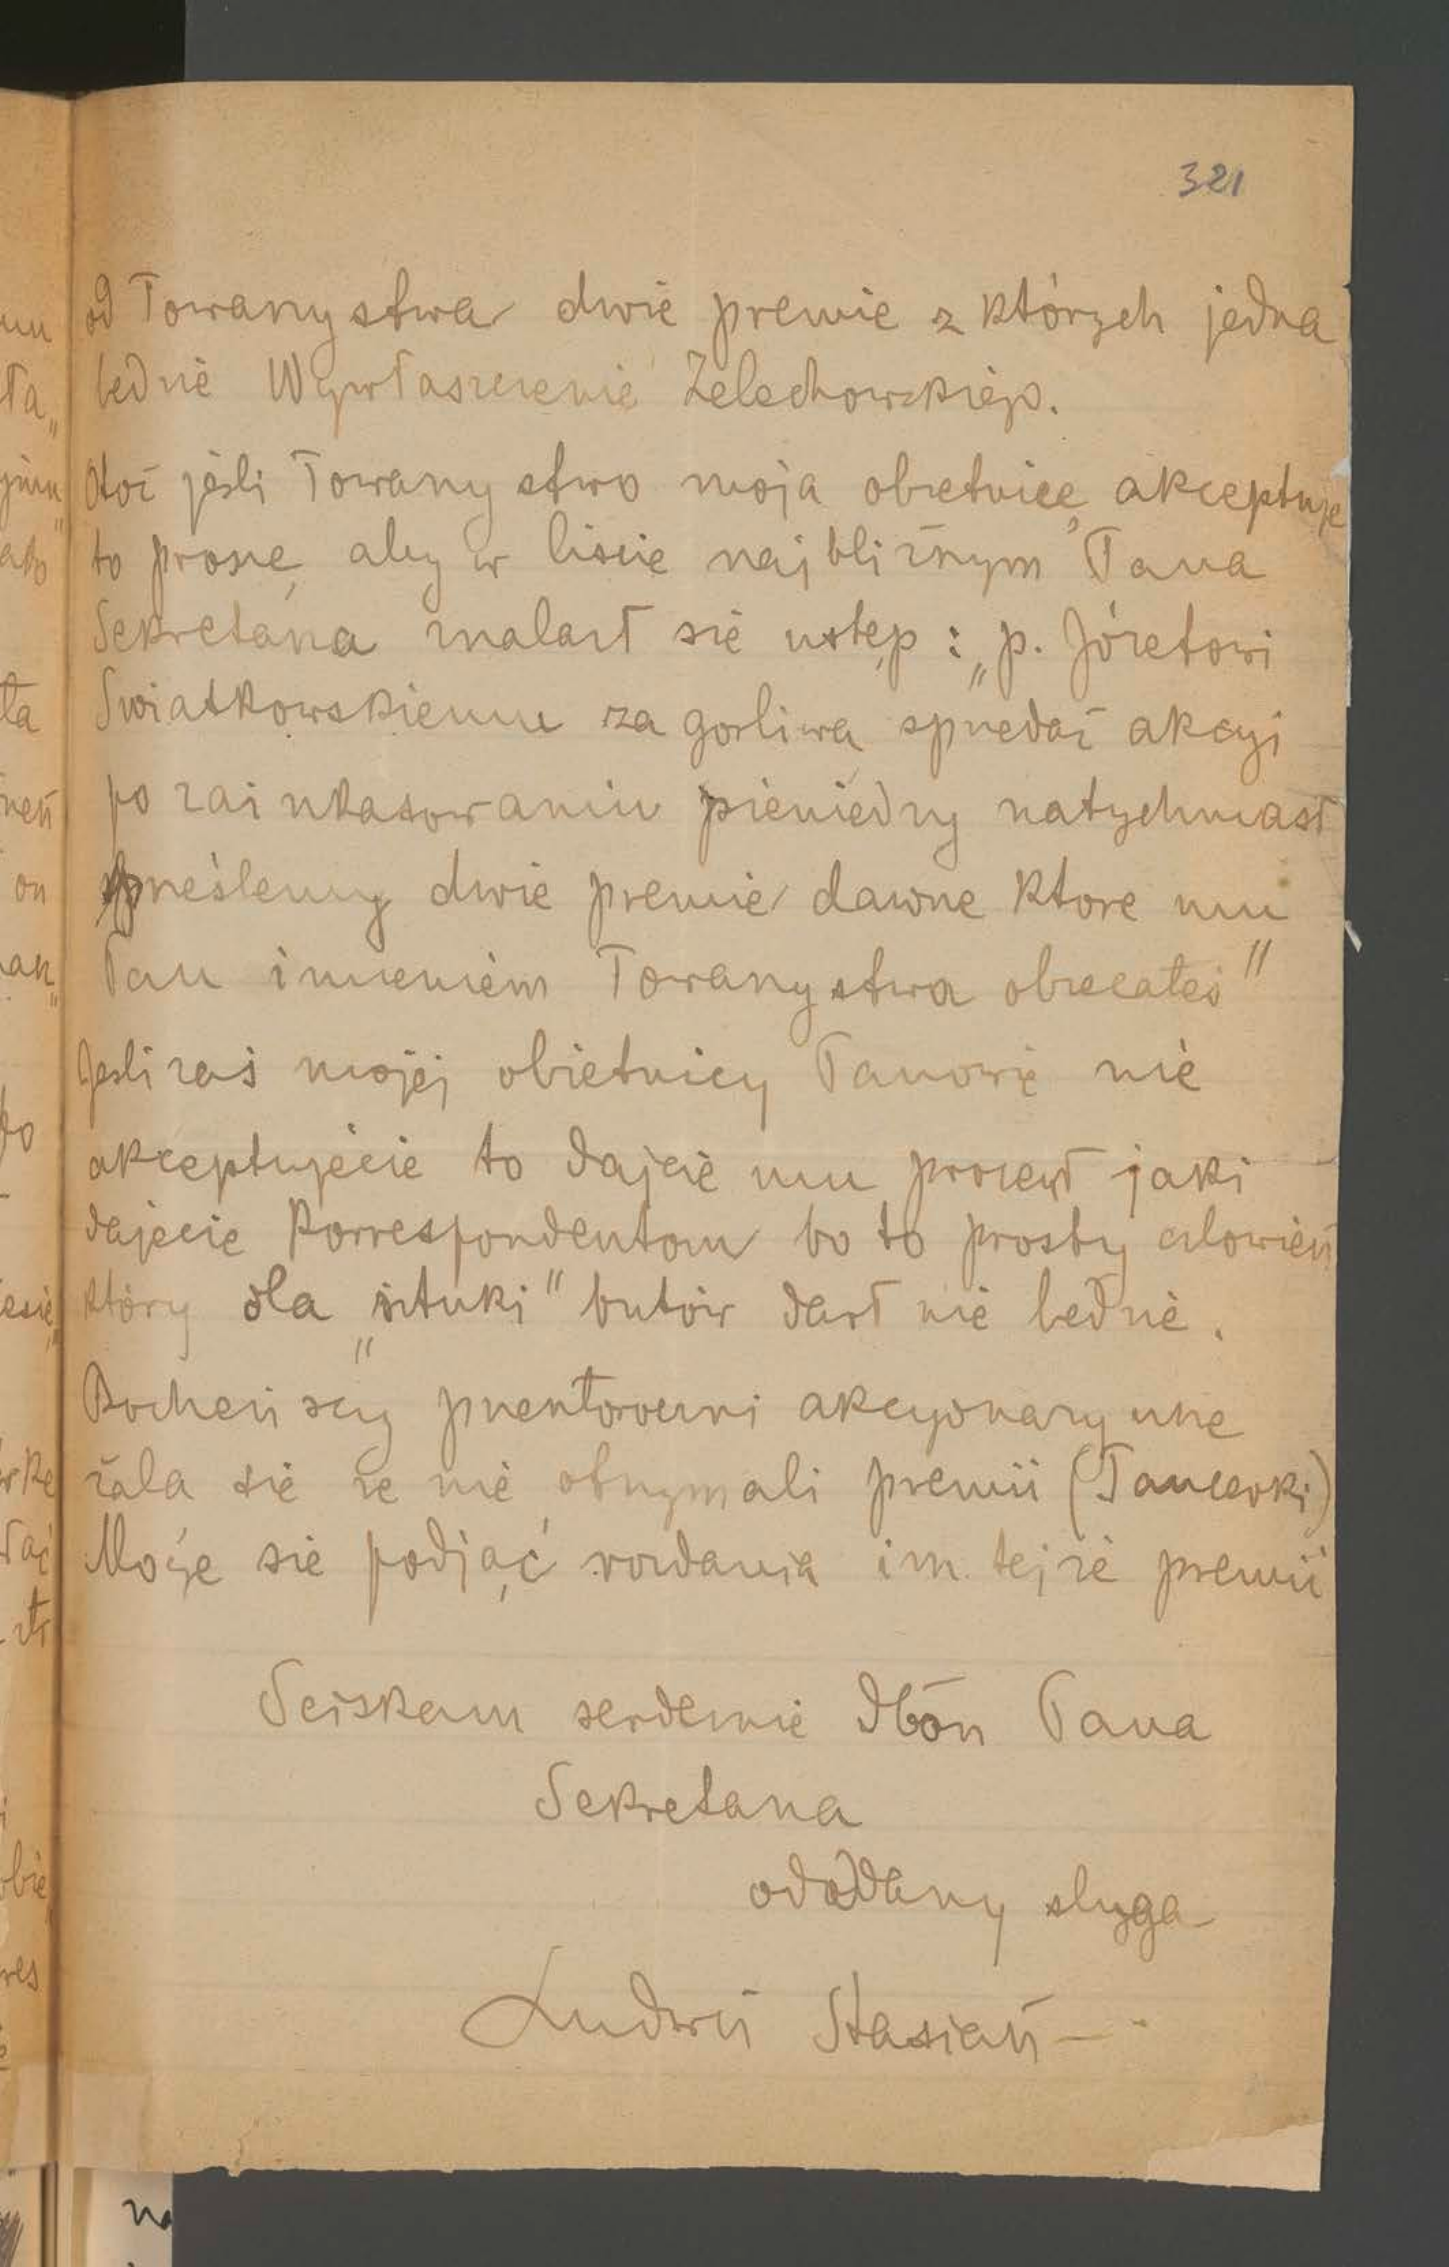 321
od Towarzystwa dwie premie z których jedna
będzie Wywłaszczenie Żelechowskiego.
Otoż jeśli Towarzystwo moja obietnicę akceptuje
to proszę aby w liście najbliższym Pana
Sekretarza znalazł się ustęp: „p. Józefowi
Swiatkowskiemu za gorliwą sprzedaż akcyi
po zainkasowaniu pieniędzy natychmiast
prześlemy dwie premie dawne ktore mu
Pan imieniem Towarzystwa obiecałeś"
Jeśli zaś mojej obietnicy Panowie nie
akceptujecie to dajcie mu procent jaki
dajecie Korrespondentom bo to prosty człowiek
który dla „sztuki" butów darł nie będzie.
Bocheńscy przeszłoroczni akcyonaryusze
żalą się ze nie otrzymali premii (Tancerki)
Może się podjąć rozdania im tejże premii
Sciskam serdecznie dłoń Pana
Sekretarza
oddany sługa
Ludwik Stasiak